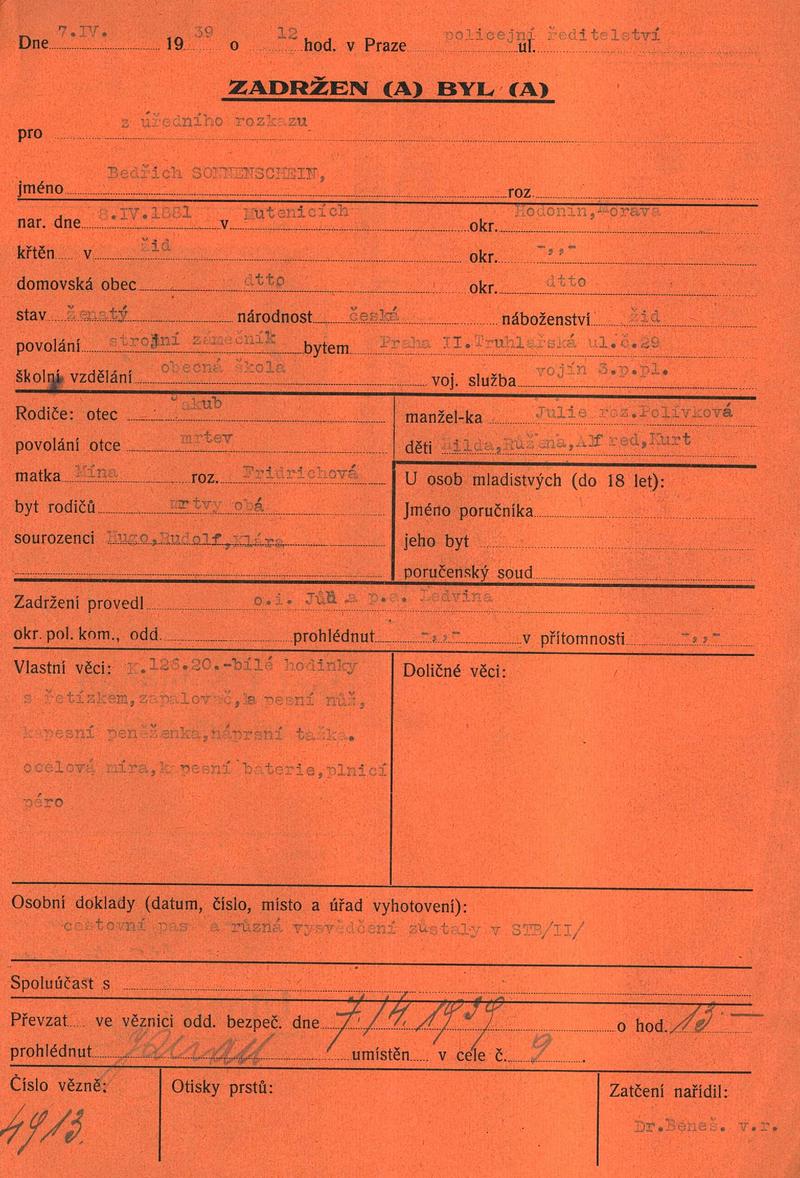 Dne 7.IV. 1939 o 12 hod. v Praze policejní ředitelství ul.
ZADRŽEN (A) BYL (A)
pro z úředního rozkazu
jméno Bedřich SONNENSCHEIN, roz.
nar. dne 8.IV.1881 v Mutenicích okr. Hodonín, Morava
křtěn v žid okr. -,,-
domovská obec dtto okr. dtto
stav ženatý národnost česká náboženství žid
povolání strojní zámečník bytem Praha II.Truhlářská ul.č.29
školní vzdělání obecná škola voj. služba vojín 3.p.pl.
Rodiče: otec Jakub
povolání otce mrtev
matka Mína roz. Fridrichová
byt rodičů mrtvy obá
sourozenci Hugo,Rudolf,Klára
manžel-ka Julie roz.Polívková
děti Hilda,Růžena,Alfred,Kurt
U osob mladistvých (do 18 let):
Jméno poručníka
jeho byt
poručenský soud
Zadržení provedl o.i. a p.a. Ledvina
okr. pol. kom., odd. prohlédnut -,,- v přítomnosti -,,-
Vlastní věci: K.126.20.-bílé hodinky
s řetízkem,zapalovač,kapesní nůž,
kapesní peněženka,náprsní taška.
ocelová míra,kapesní baterie,plnicí
péro
Doličné věci:
Osobní doklady (datum, číslo, místo a úřad vyhotovení):
cestovní pas a různá vysvědčení zůstaly v STB/II/
Spoluúčast s
Převzat ve věznici odd. bezpeč. dne 7/4. 1939 o hod. 13 —
prohlédnut umístěn v cele č. 9.
Číslo vězně:
4913.
Otisky prstů:
Zatčení nařídil:
Dr.Beneš. v.r.